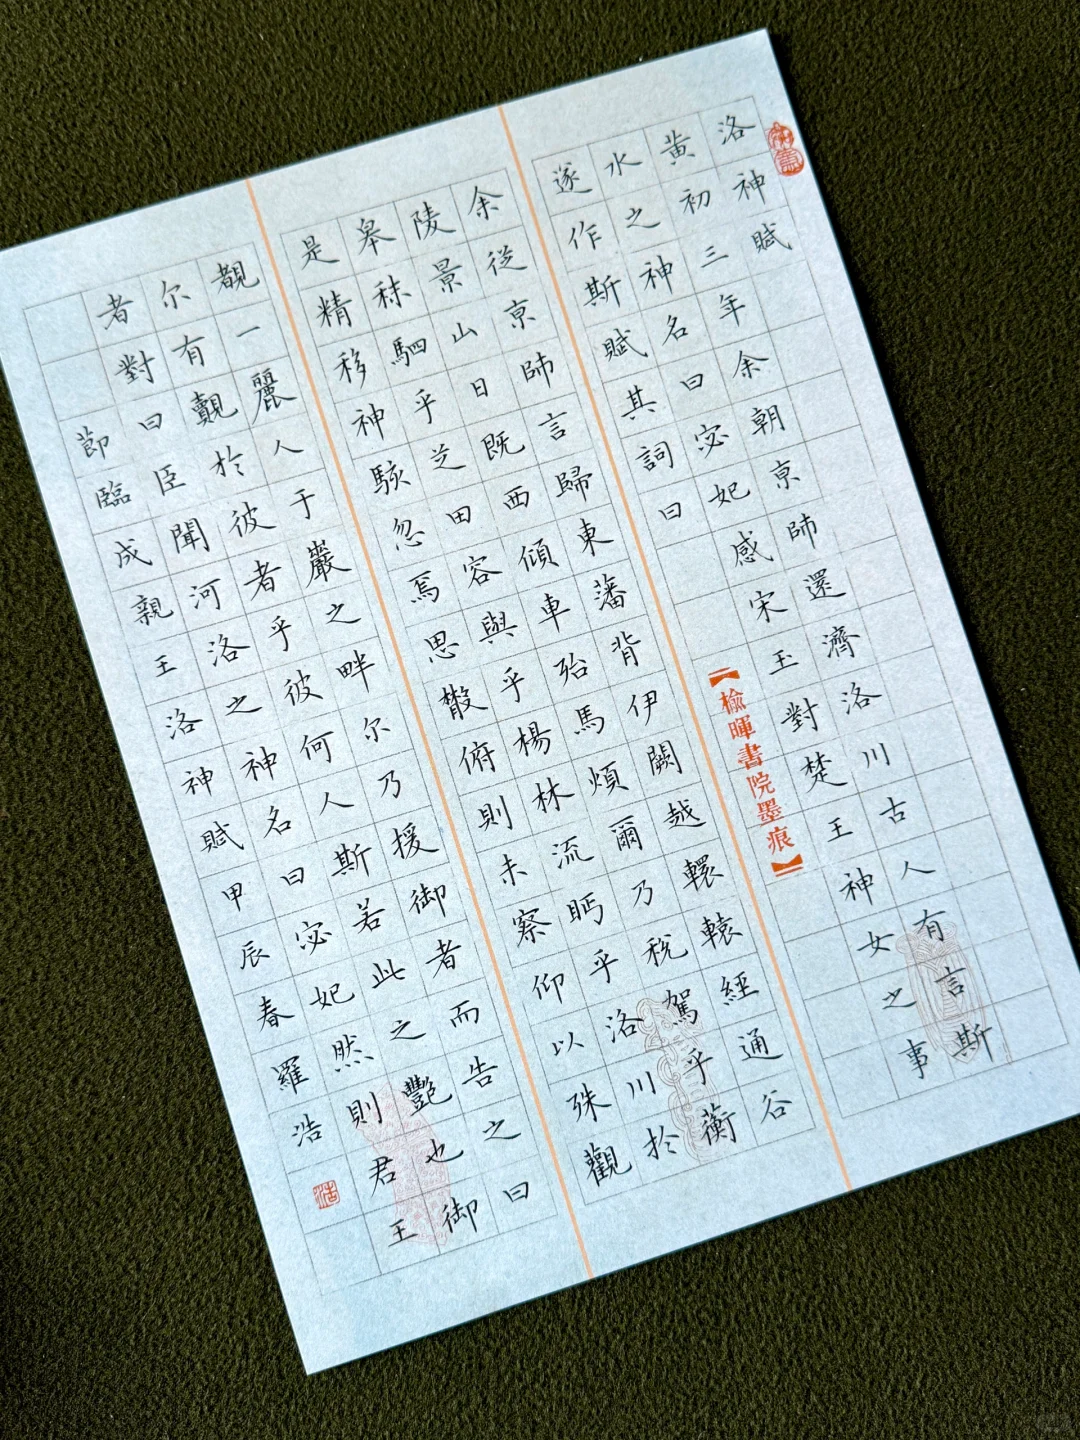 洛神賦
黄初三年余朝京師還濟洛川古人有言斯
水之神名曰宓妃感宋玉對楚王神女之事
遂作斯賦其詞曰
【榆暉書院墨痕】
余從京師言歸東藩背伊闕越轘轅經通谷
陵景山日既西傾車殆馬煩爾乃稅駕乎蘅
皋秣駟乎芝田容與乎楊林流眄乎洛川於
是精移神駭忽焉思散俯則未察仰以殊觀
覩一麗人于巖之畔尔乃援御者而告之曰
尔有覿於彼者乎彼何人斯若此之艷也御
者對曰臣聞河洛之神名曰宓妃然則君王
節臨成親王洛神賦甲辰春羅浩
浩